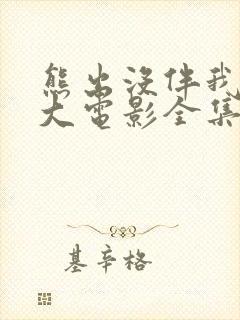 熊出没伴我
大电影全集
基辛格